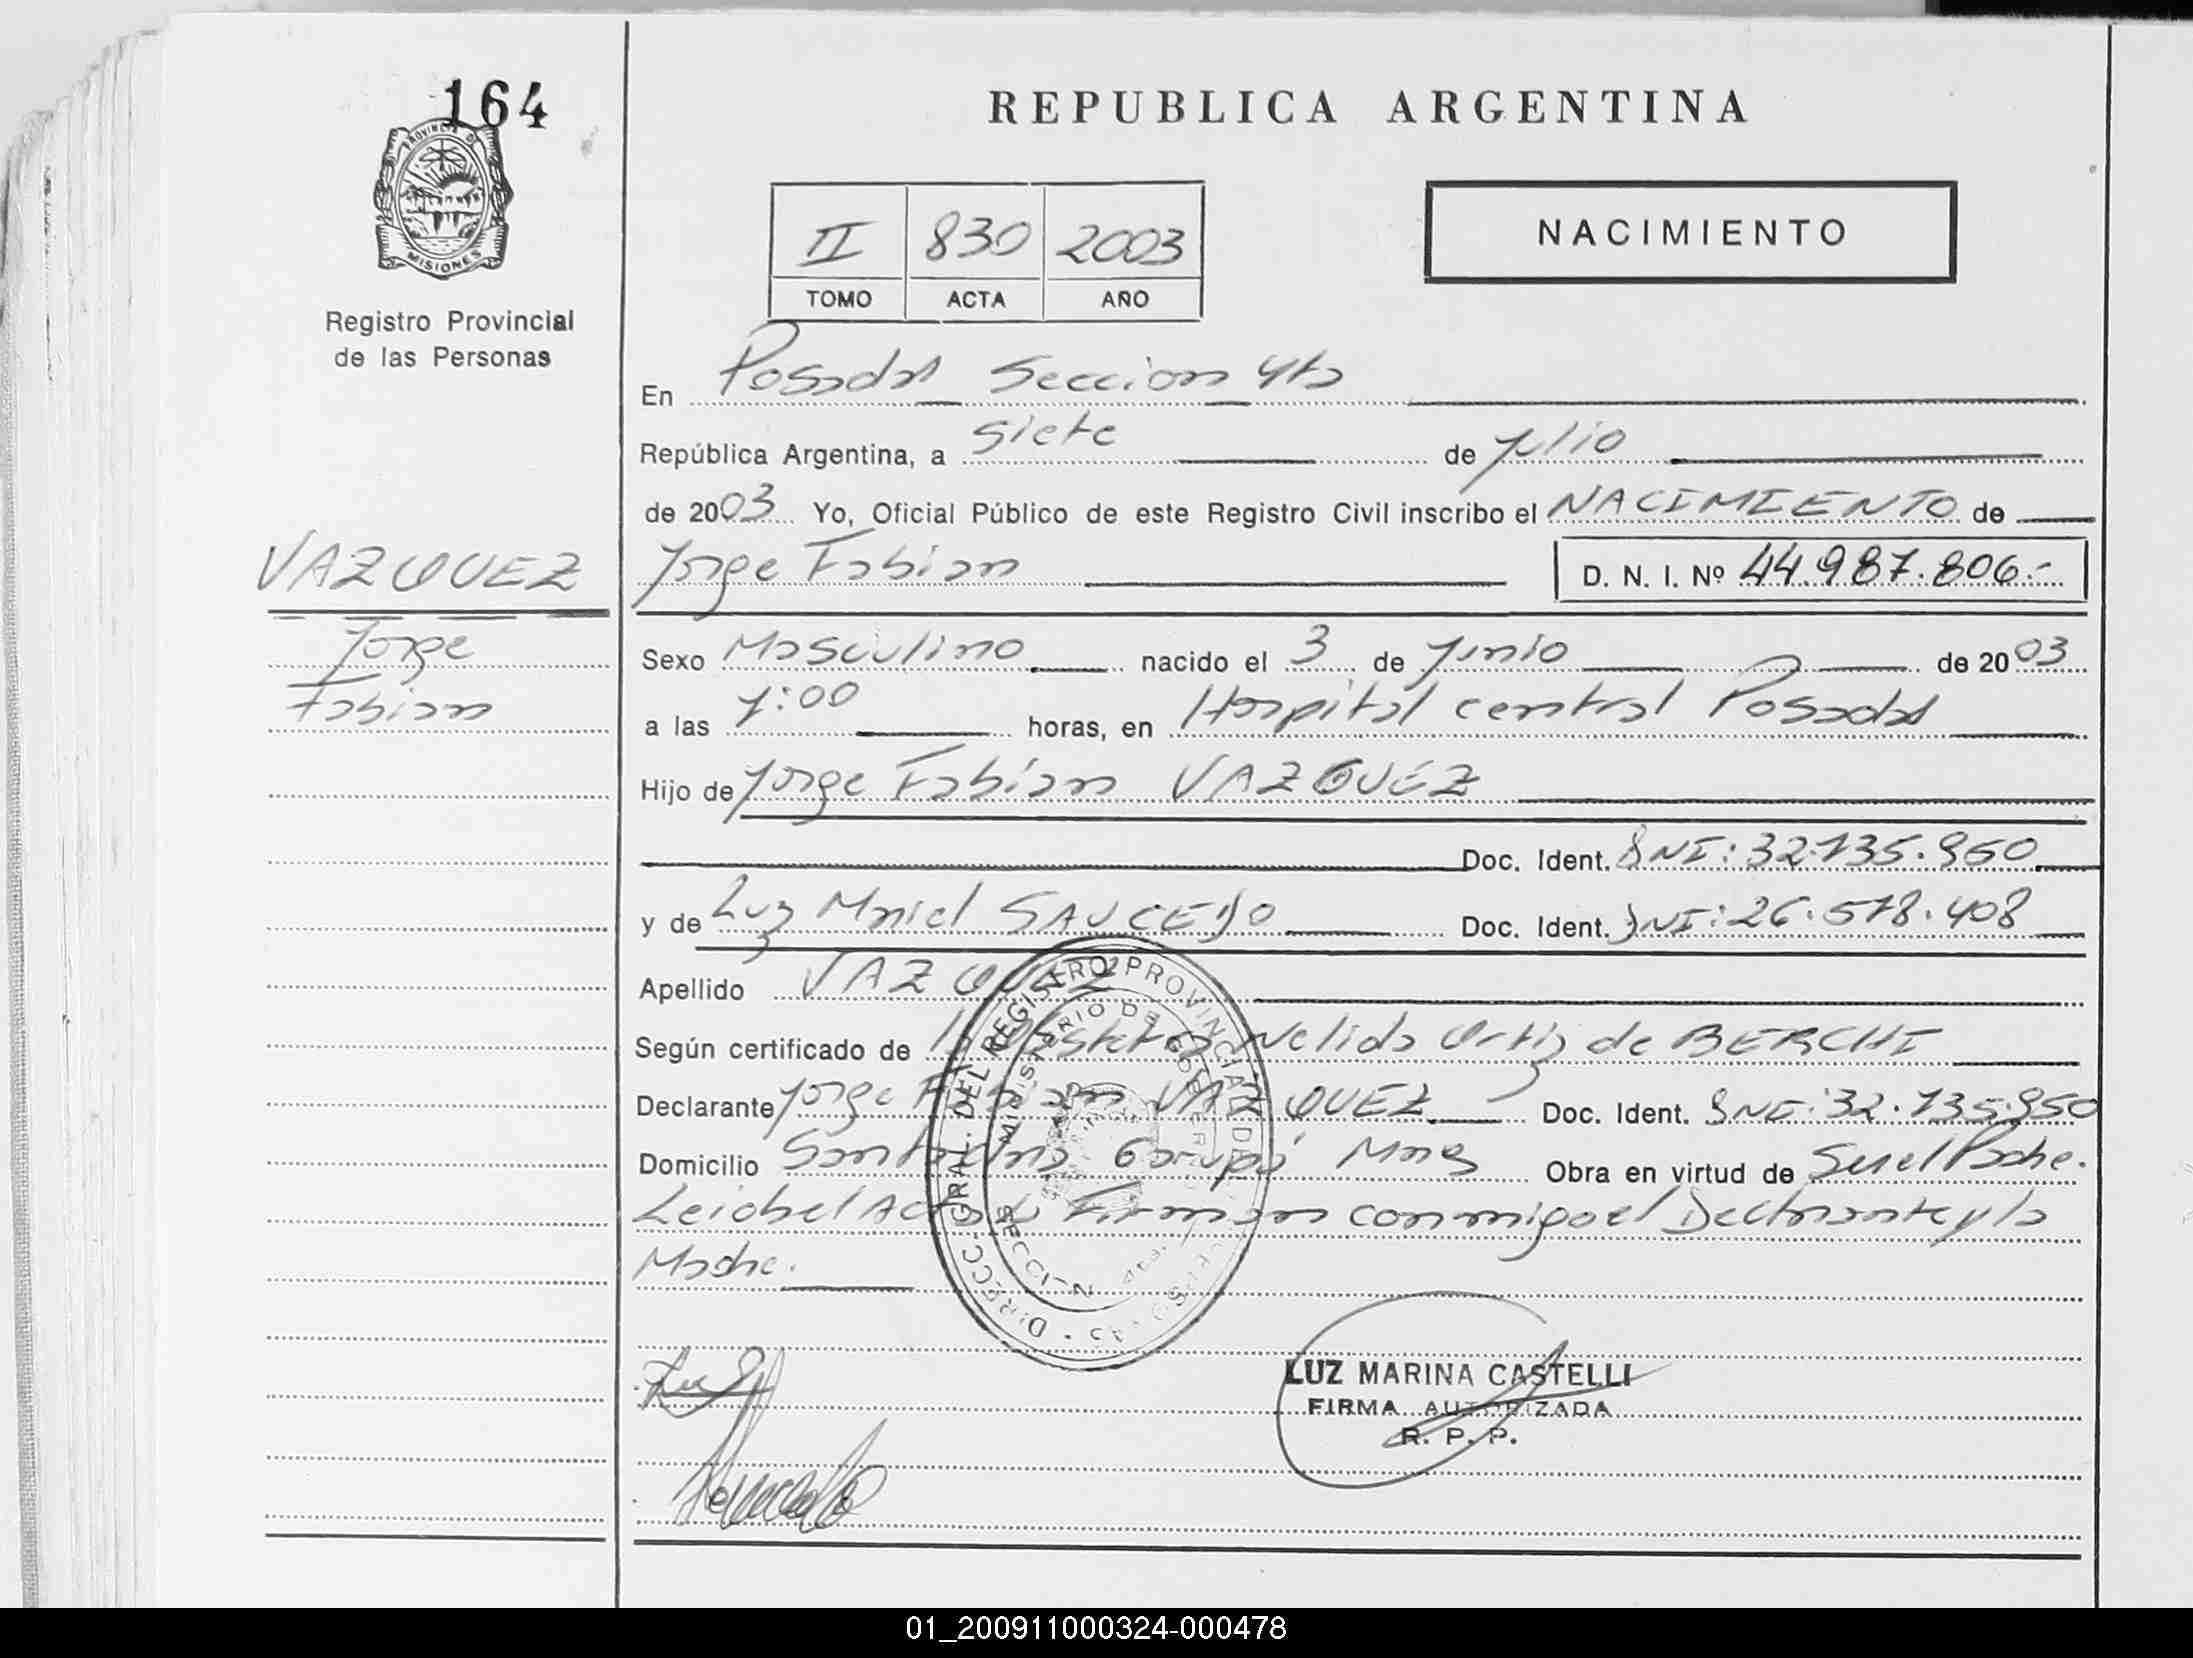 164
PROVINCIA DE
MISIONES
Registro Provincial
de las Personas
REPUBLICA ARGENTINA
II 830 2003
TOMO ACTA AÑO
NACIMIENTO
En Posadas Seccion 4ta
República Argentina, a siete de Julio
de 2003 Yo, Oficial Público de este Registro Civil inscribo el NACIMIENTO de
VAZQUEZ
Jorge
Fabian
Jorge Fabian D. N. I. Nº 44.987.806.-
Sexo Masculino nacido el 3 de Junio de 2003
a las 7:00 horas, en Hospital central Posadas
Hijo de Jorge Fabian VAZQUEZ
Doc. Ident. DNI: 32.135.950
y de Luz Mariel SAUCEDO Doc. Ident. DNI: 26.578.408
Apellido VAZQUEZ
Según certificado de la Obstetra Nelida Ortiz de BERCHI
Declarante Jorge Fabian VAZQUEZ Doc. Ident. DNI: 32.135.950
Domicilio Santa Garupá Mnes Obra en virtud de Ser el Padre.
Leida el Acta Firman conmigo el Declarante y la
Madre.
DIRECC. GRAL. DEL REGISTRO PROVINCIAL DE LAS PERSONAS
MINISTERIO DE GOBIERNO
SECCION
LUZ MARINA CASTELLI
FIRMA AUTORIZADA
R. P. P.
01_200911000324-000478